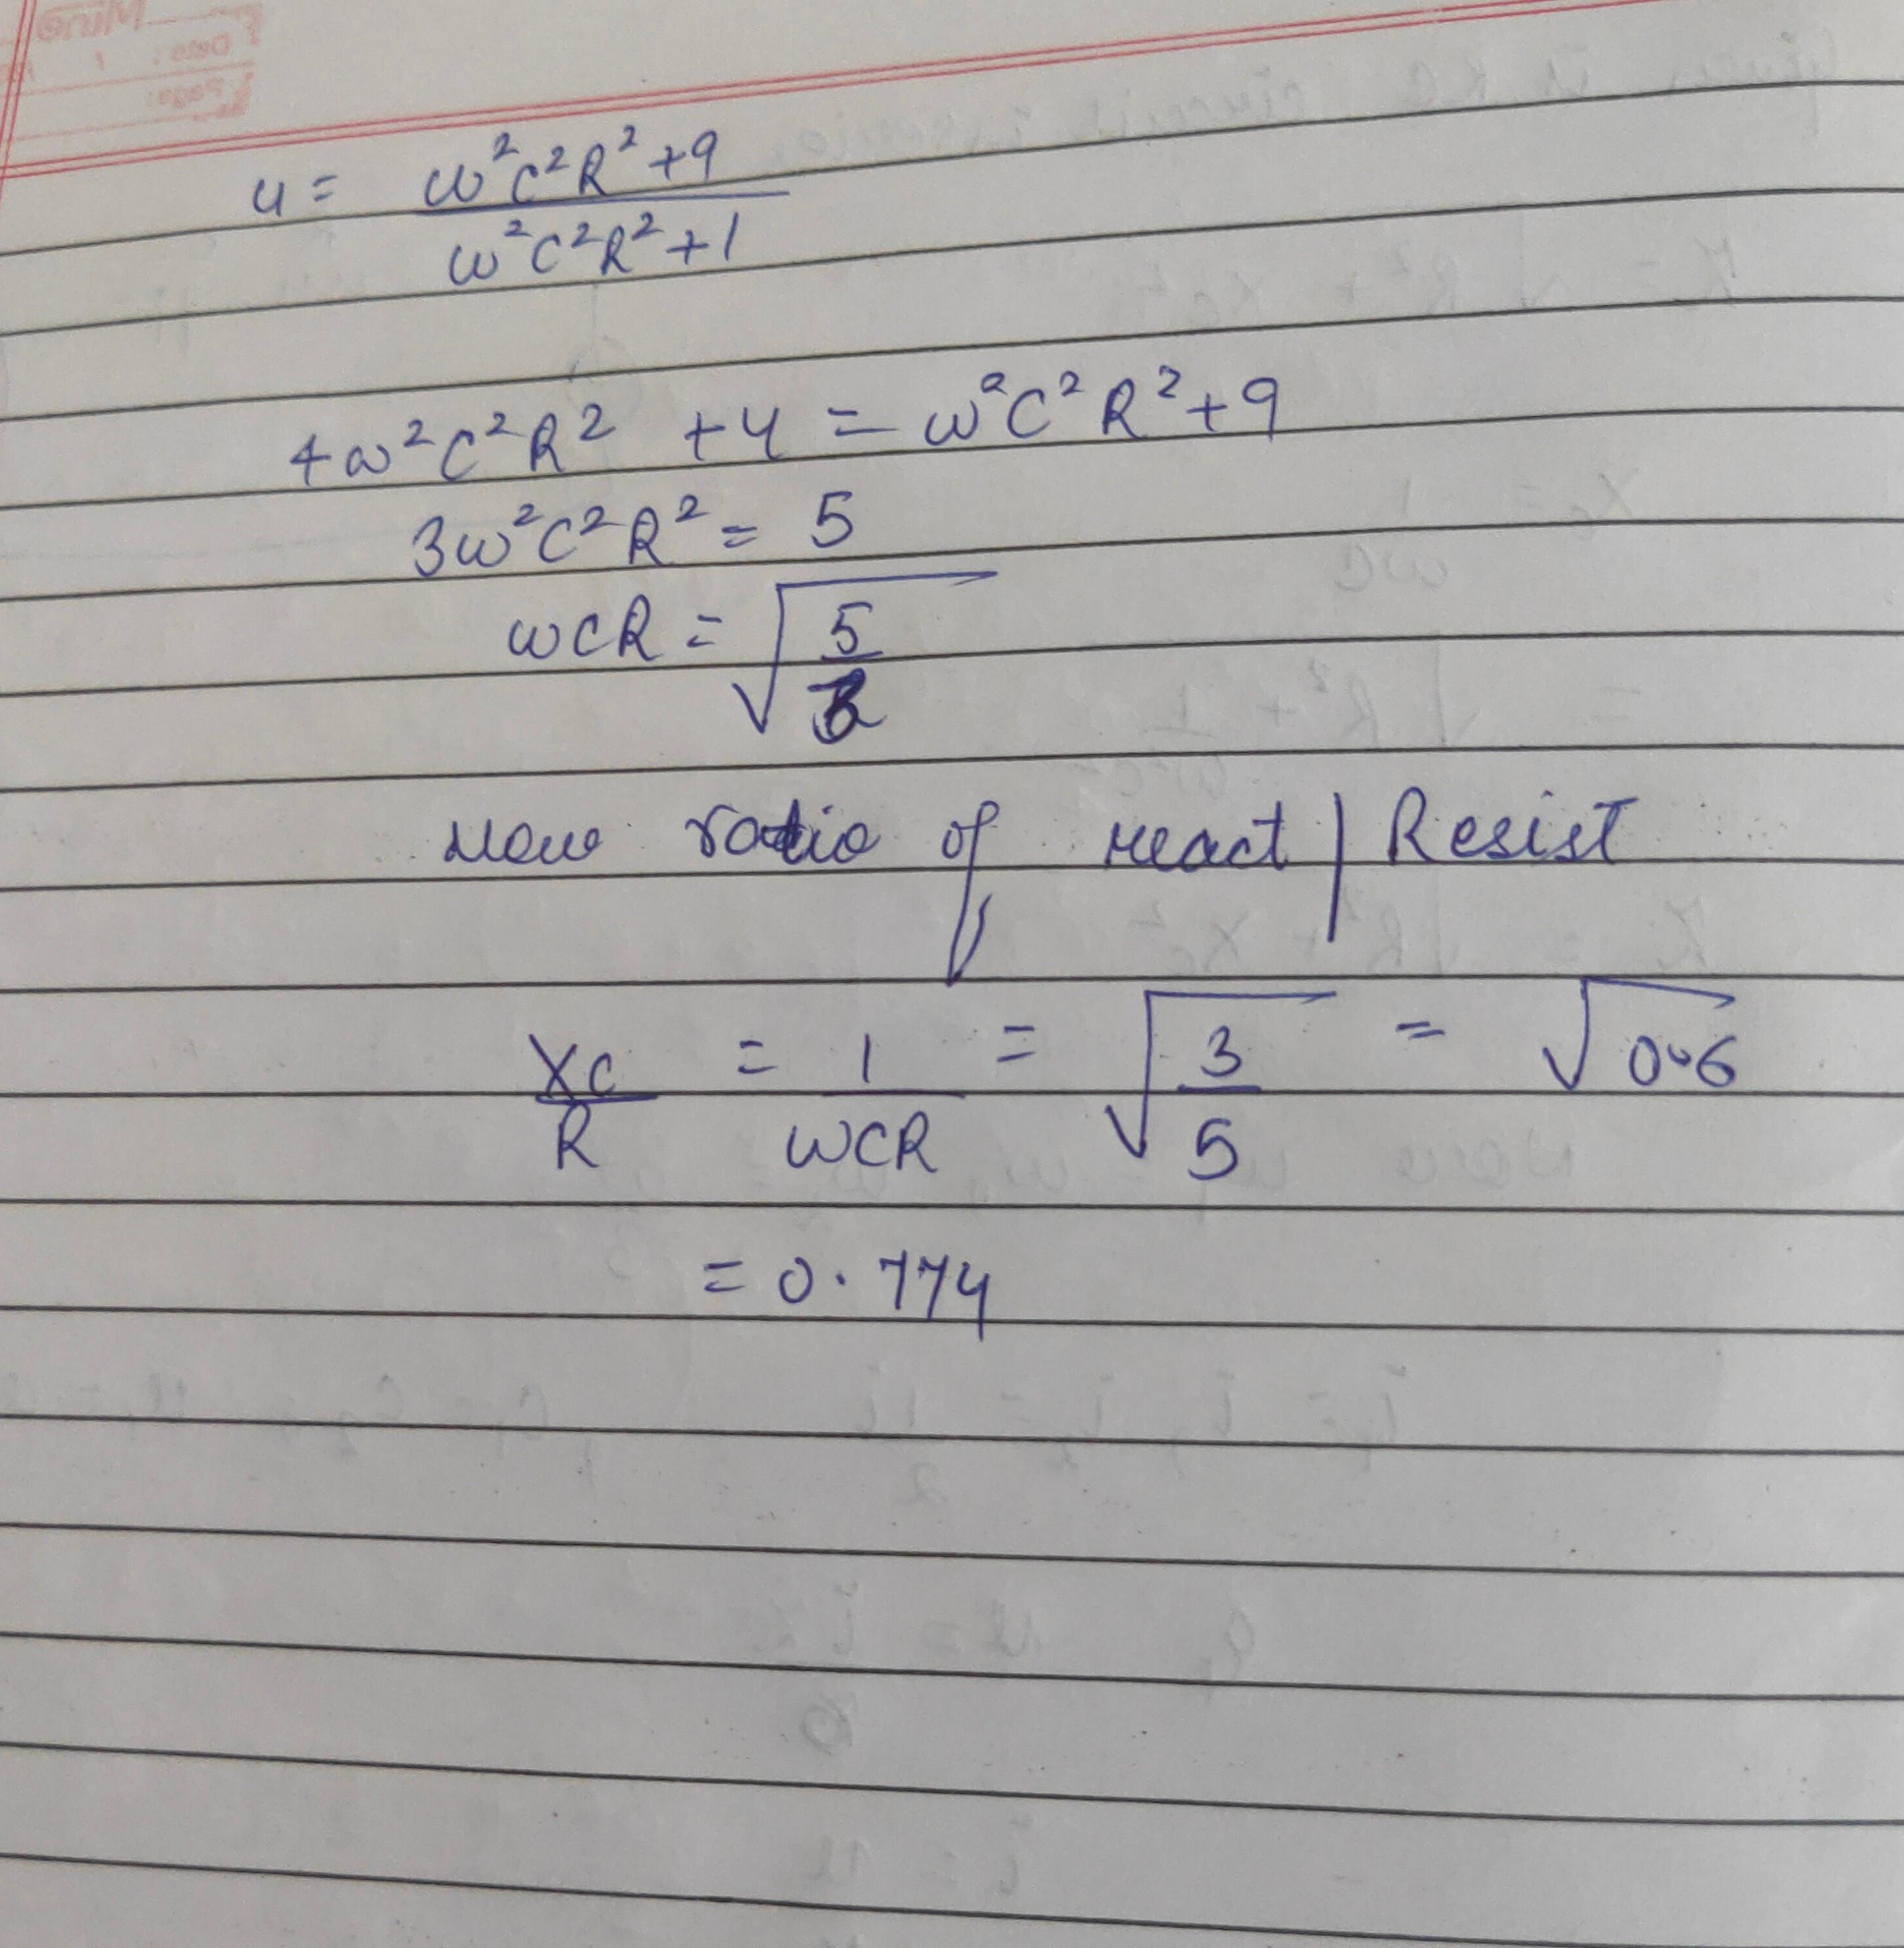 4 = ω²C²R² + 9 / ω²C²R² + 1
4ω²C²R² + 4 = ω²C²R² + 9
3ω²C²R² = 5
ωCR = √(5/3)
Now ratio of react | Resist
Xc/R = 1/ωCR = √(3/5) = √0.6
= 0.774